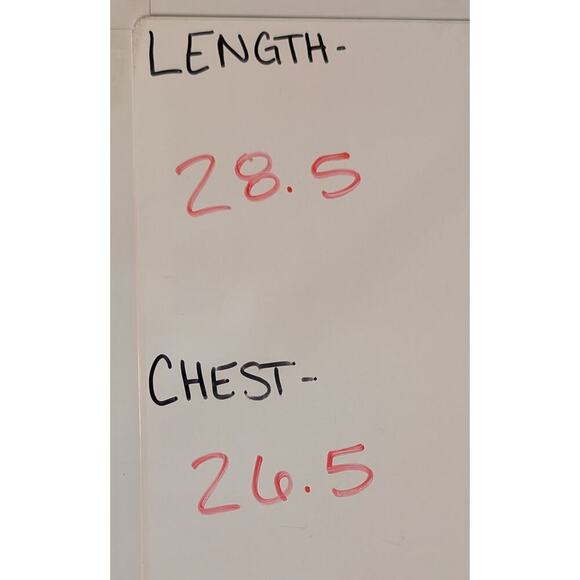 LENGTH-
28.5
CHEST-
26.5